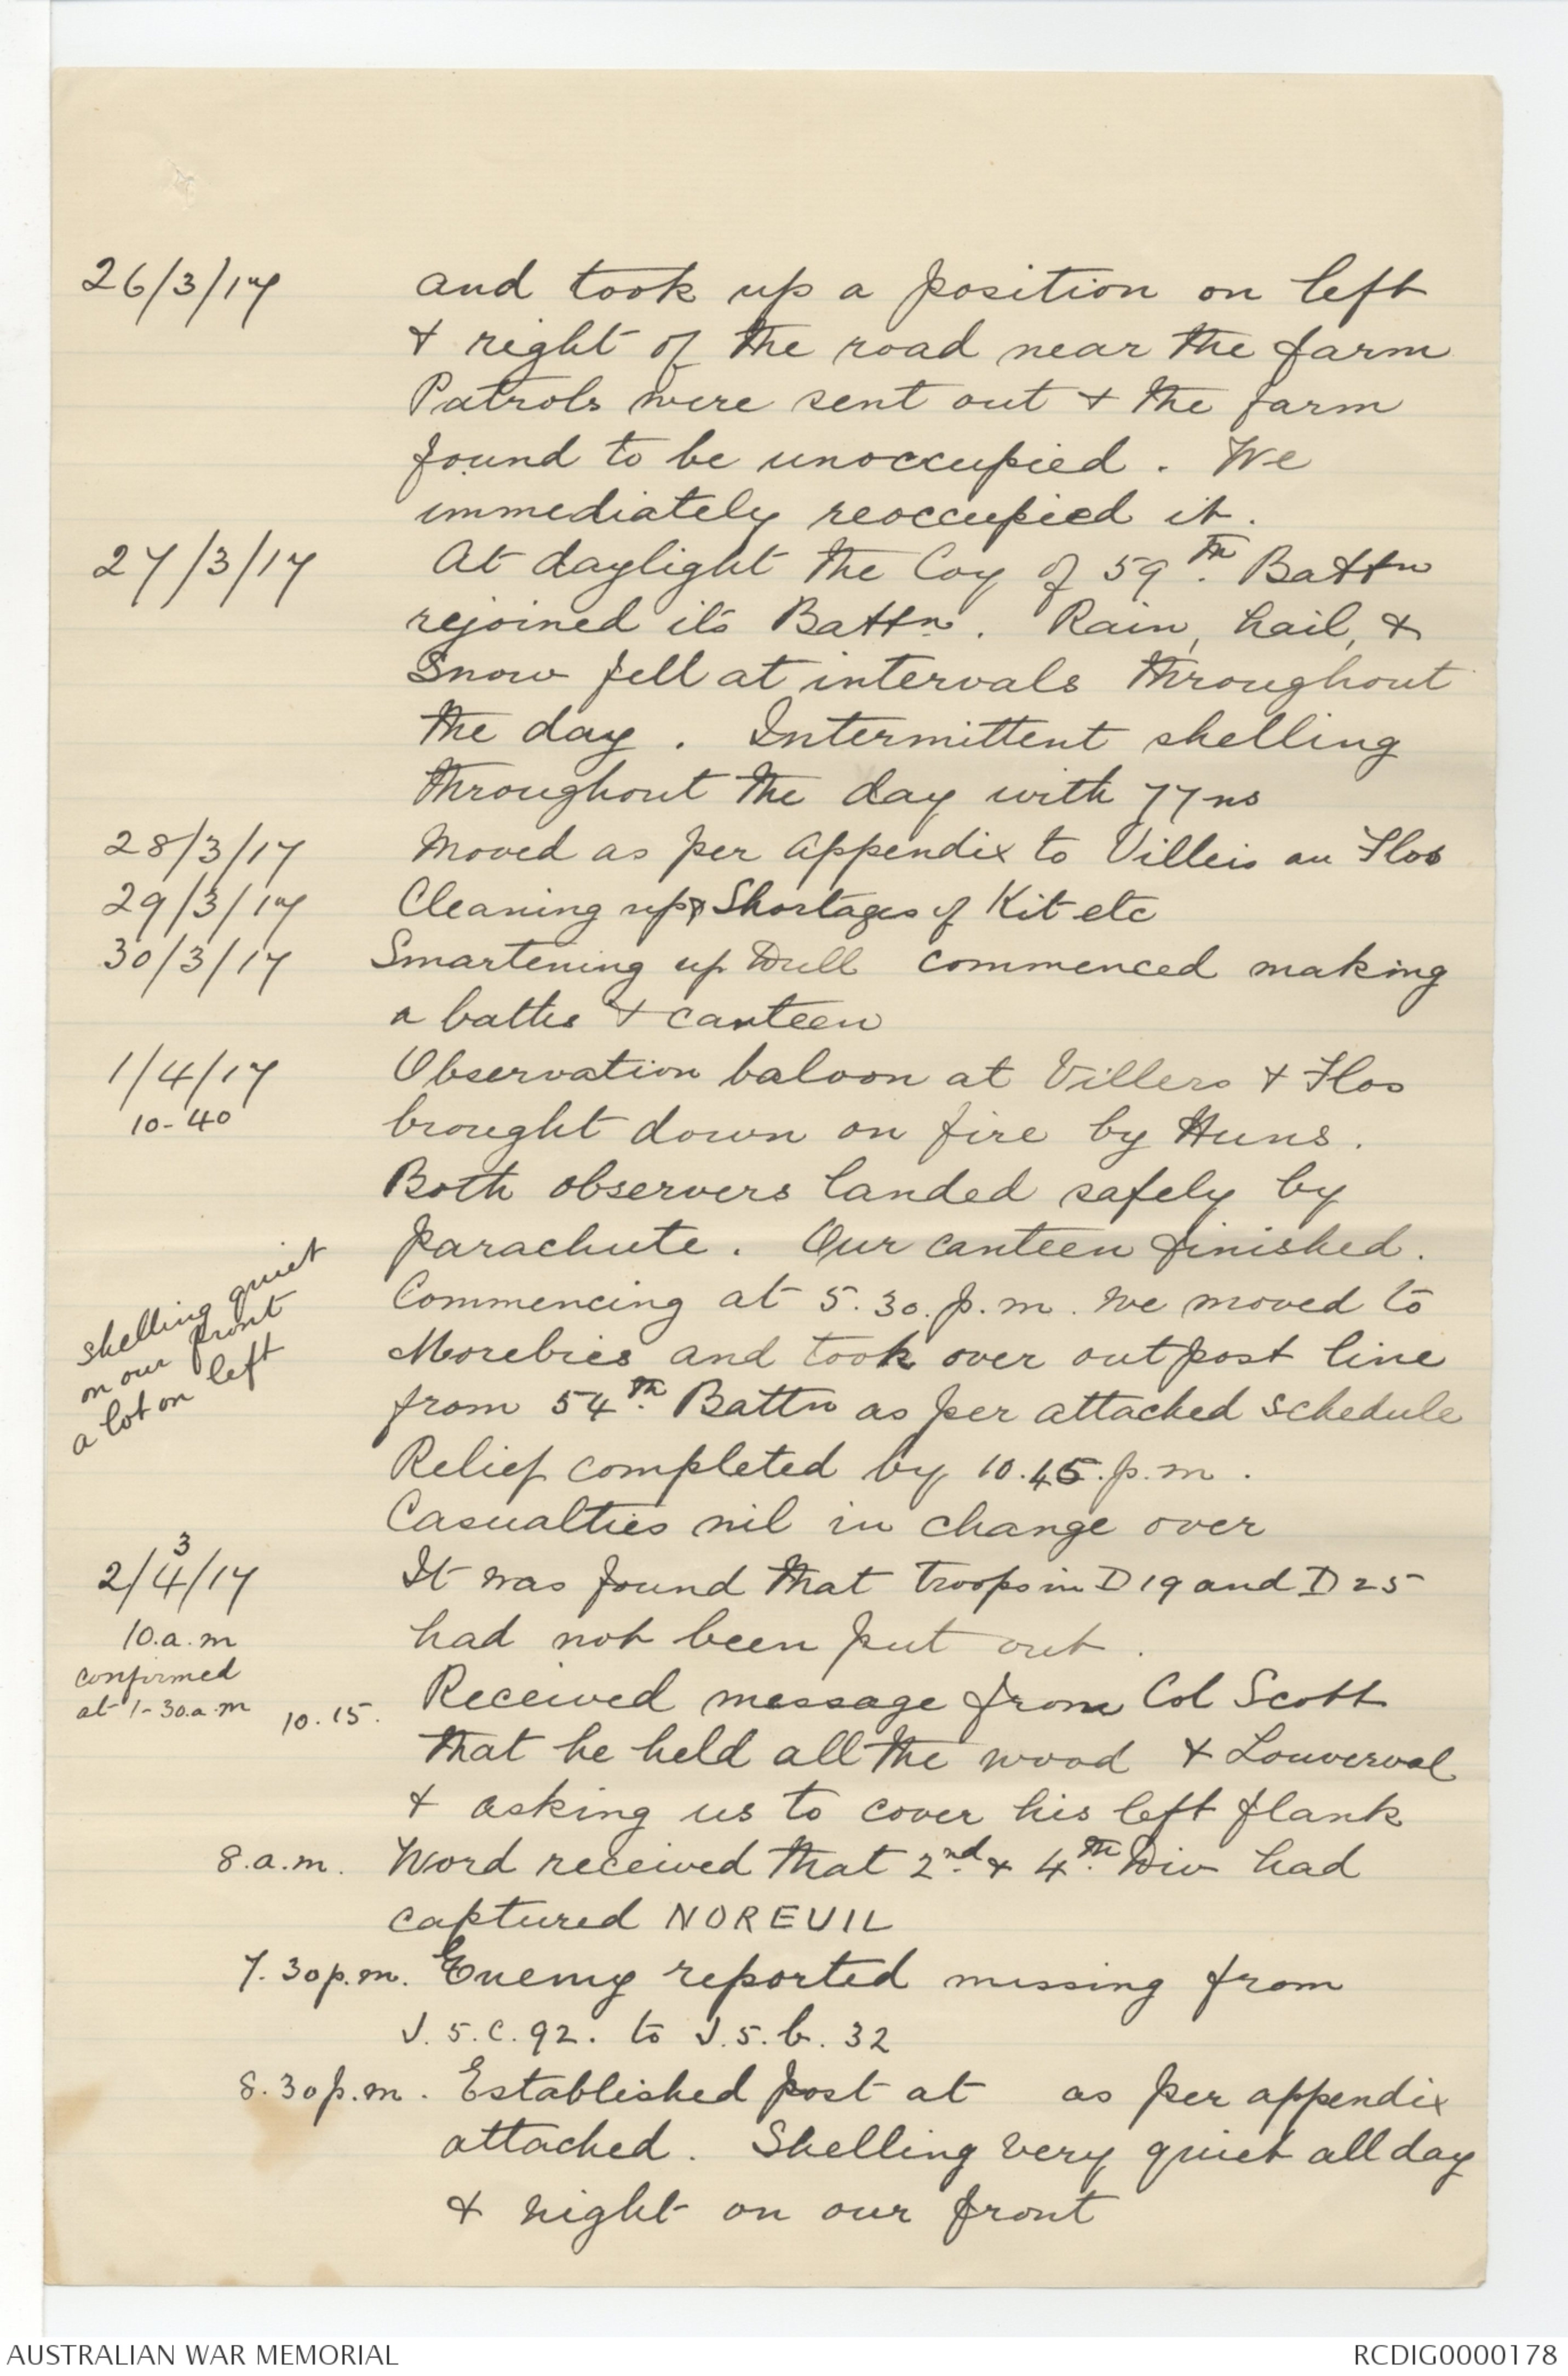 26/3/17 and took up a position on left
& right of the road near the farm
Patrols were sent out & the farm
found to be unoccupied. We
immediately reoccupied it.
27/3/17 At daylight the Coy of 59th. Battn
rejoined its Battn. Rain, hail, &
Snow fell at intervals throughout
the day. Intermittent shelling
throughout the day with 77ns
28/3/17 Moved as per appendix to Villeis au Flos
29/3/17 Cleaning up & Shortages of Kit etc
30/3/17 Smartening up Drill commenced making
a baths & canteen
1/4/17 Observation baloon at Villers & Flos
10-40 brought down on fire by Huns.
Both observers landed safely by
parachute. Our canteen finished.
shelling quiet
on our front
a lot on left
Commencing at 5.30.p.m. we moved to
Morebies and took over outpost line
from 54th. Battn as per attached schedule
Relief completed by 10.45.p.m.
Casualties nil in change over
3
2/4/17 It was found that troops in D19 and D25
10.a.m had not been put out.
confirmed
at 1-30a.m 10.15. Received message from Col Scott
that he held all the wood & Louverval
& asking us to cover his left flank
8.a.m. Word received that 2nd. & 4th. Div had
captured NOREUIL
7.30p.m. Enemy reported missing from
J.5.c.92. to J.5.b.32
8.30p.m. Established post at as per appendix
attached. Shelling very quiet all day
& night on our front
AUSTRALIAN WAR MEMORIAL RCDIG0000178